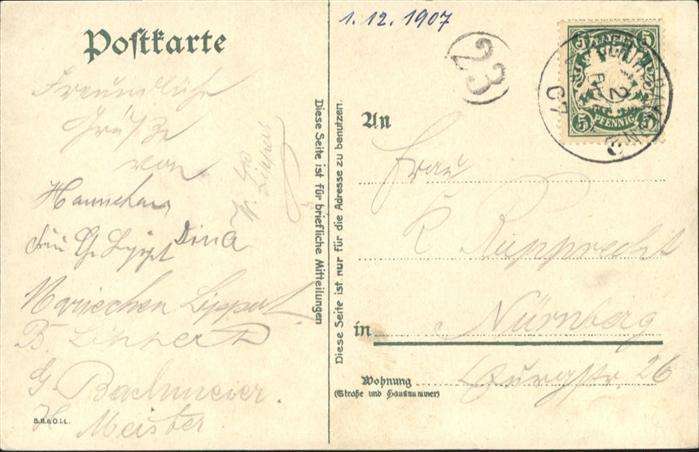 Postkarte
1. 12. 1907
23
BAYERN
5 5
5 PFENNIG 5
Freundliche
Grüße
von
Hannchen
Dina
Mariechen Lippert
B. Lippert
G Bachmeier.
Meister
Diese Seite ist für briefliche Mitteilungen
Diese Seite ist nur für die Adresse zu benutzen.
An
Frau
R Rupprecht
in Nürnberg
Wohnung
(Straße und Hausnummer)
Burgstr 26